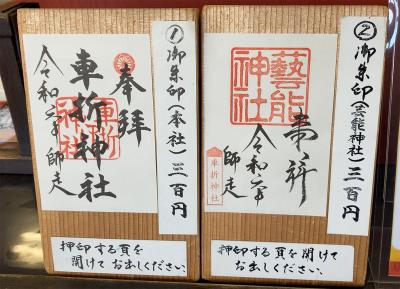 ①御朱印(本社)三百円
奉拝
車折神社
車折神社
令和二年師走
押印する頁を
開けてお出しください。
②御朱印(芸能神社)三百円
藝能神社
奉拝
令和二年
師走
車折神社
押印する頁を開けて
お出しください。